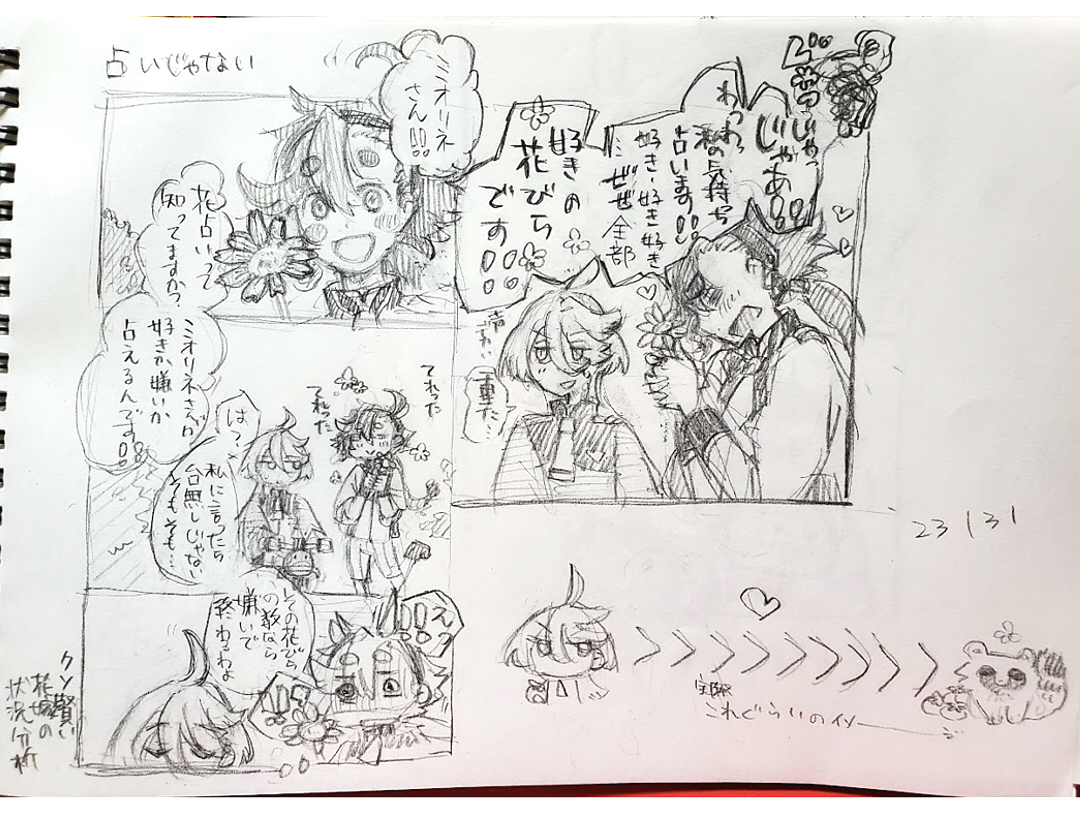 占いじゃない
ミオリネ
さん!!
花占いって
知ってますか?
ミオリネさんが
好きか嫌いか
占えるんです!!
は?
私に言ったら
台無しじゃない
そもそも…
てれった
てれった
その花びら
の数なら
嫌いで
終わるわよ
えっ
!!
クソ賢い
花嫁の
状況分析
じゃっ
じゃあ!!
わっわっ
私の気持ち
占います!!
好き・好き好き
ぜぜ全部
好きの
花びら
です!!
重た…
23 131
実際
これぐらいのイメージ